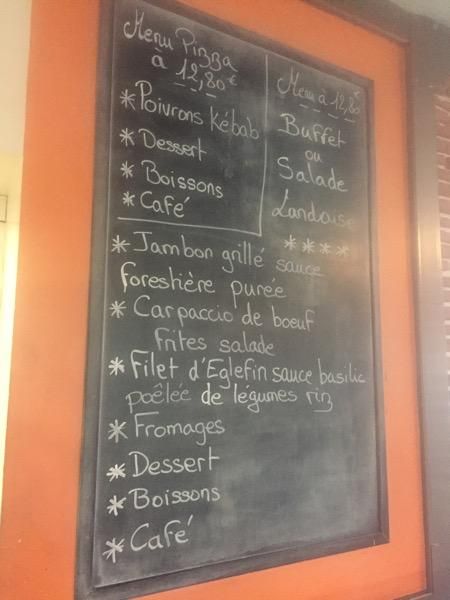 Menu Pizza
à 12,80€
* Poivrons Kébab
* Dessert
* Boissons
* Café
Menu à 12,80€
Buffet
ou
Salade
Landaise
****
* Jambon grillé sauce
forestière purée
* Carpaccio de boeuf
frites salade
* Filet d'Eglefin sauce basilic
poêlée de légumes riz
* Fromages
* Dessert
* Boissons
* Café